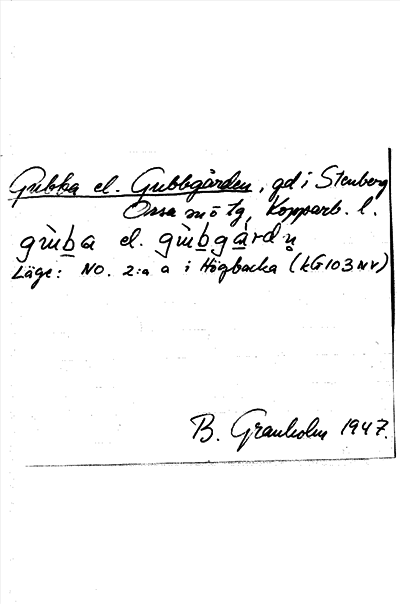 Gubba el. Gubbgården, gd i Stenberg
Orsa sn o tg, Kopparb. l.
gùb̲a el. gùb̲g̲å̲rdn̥
Läge: NO. 2:a a i Högbacka (kG103NV)
B. Granholm 1947.